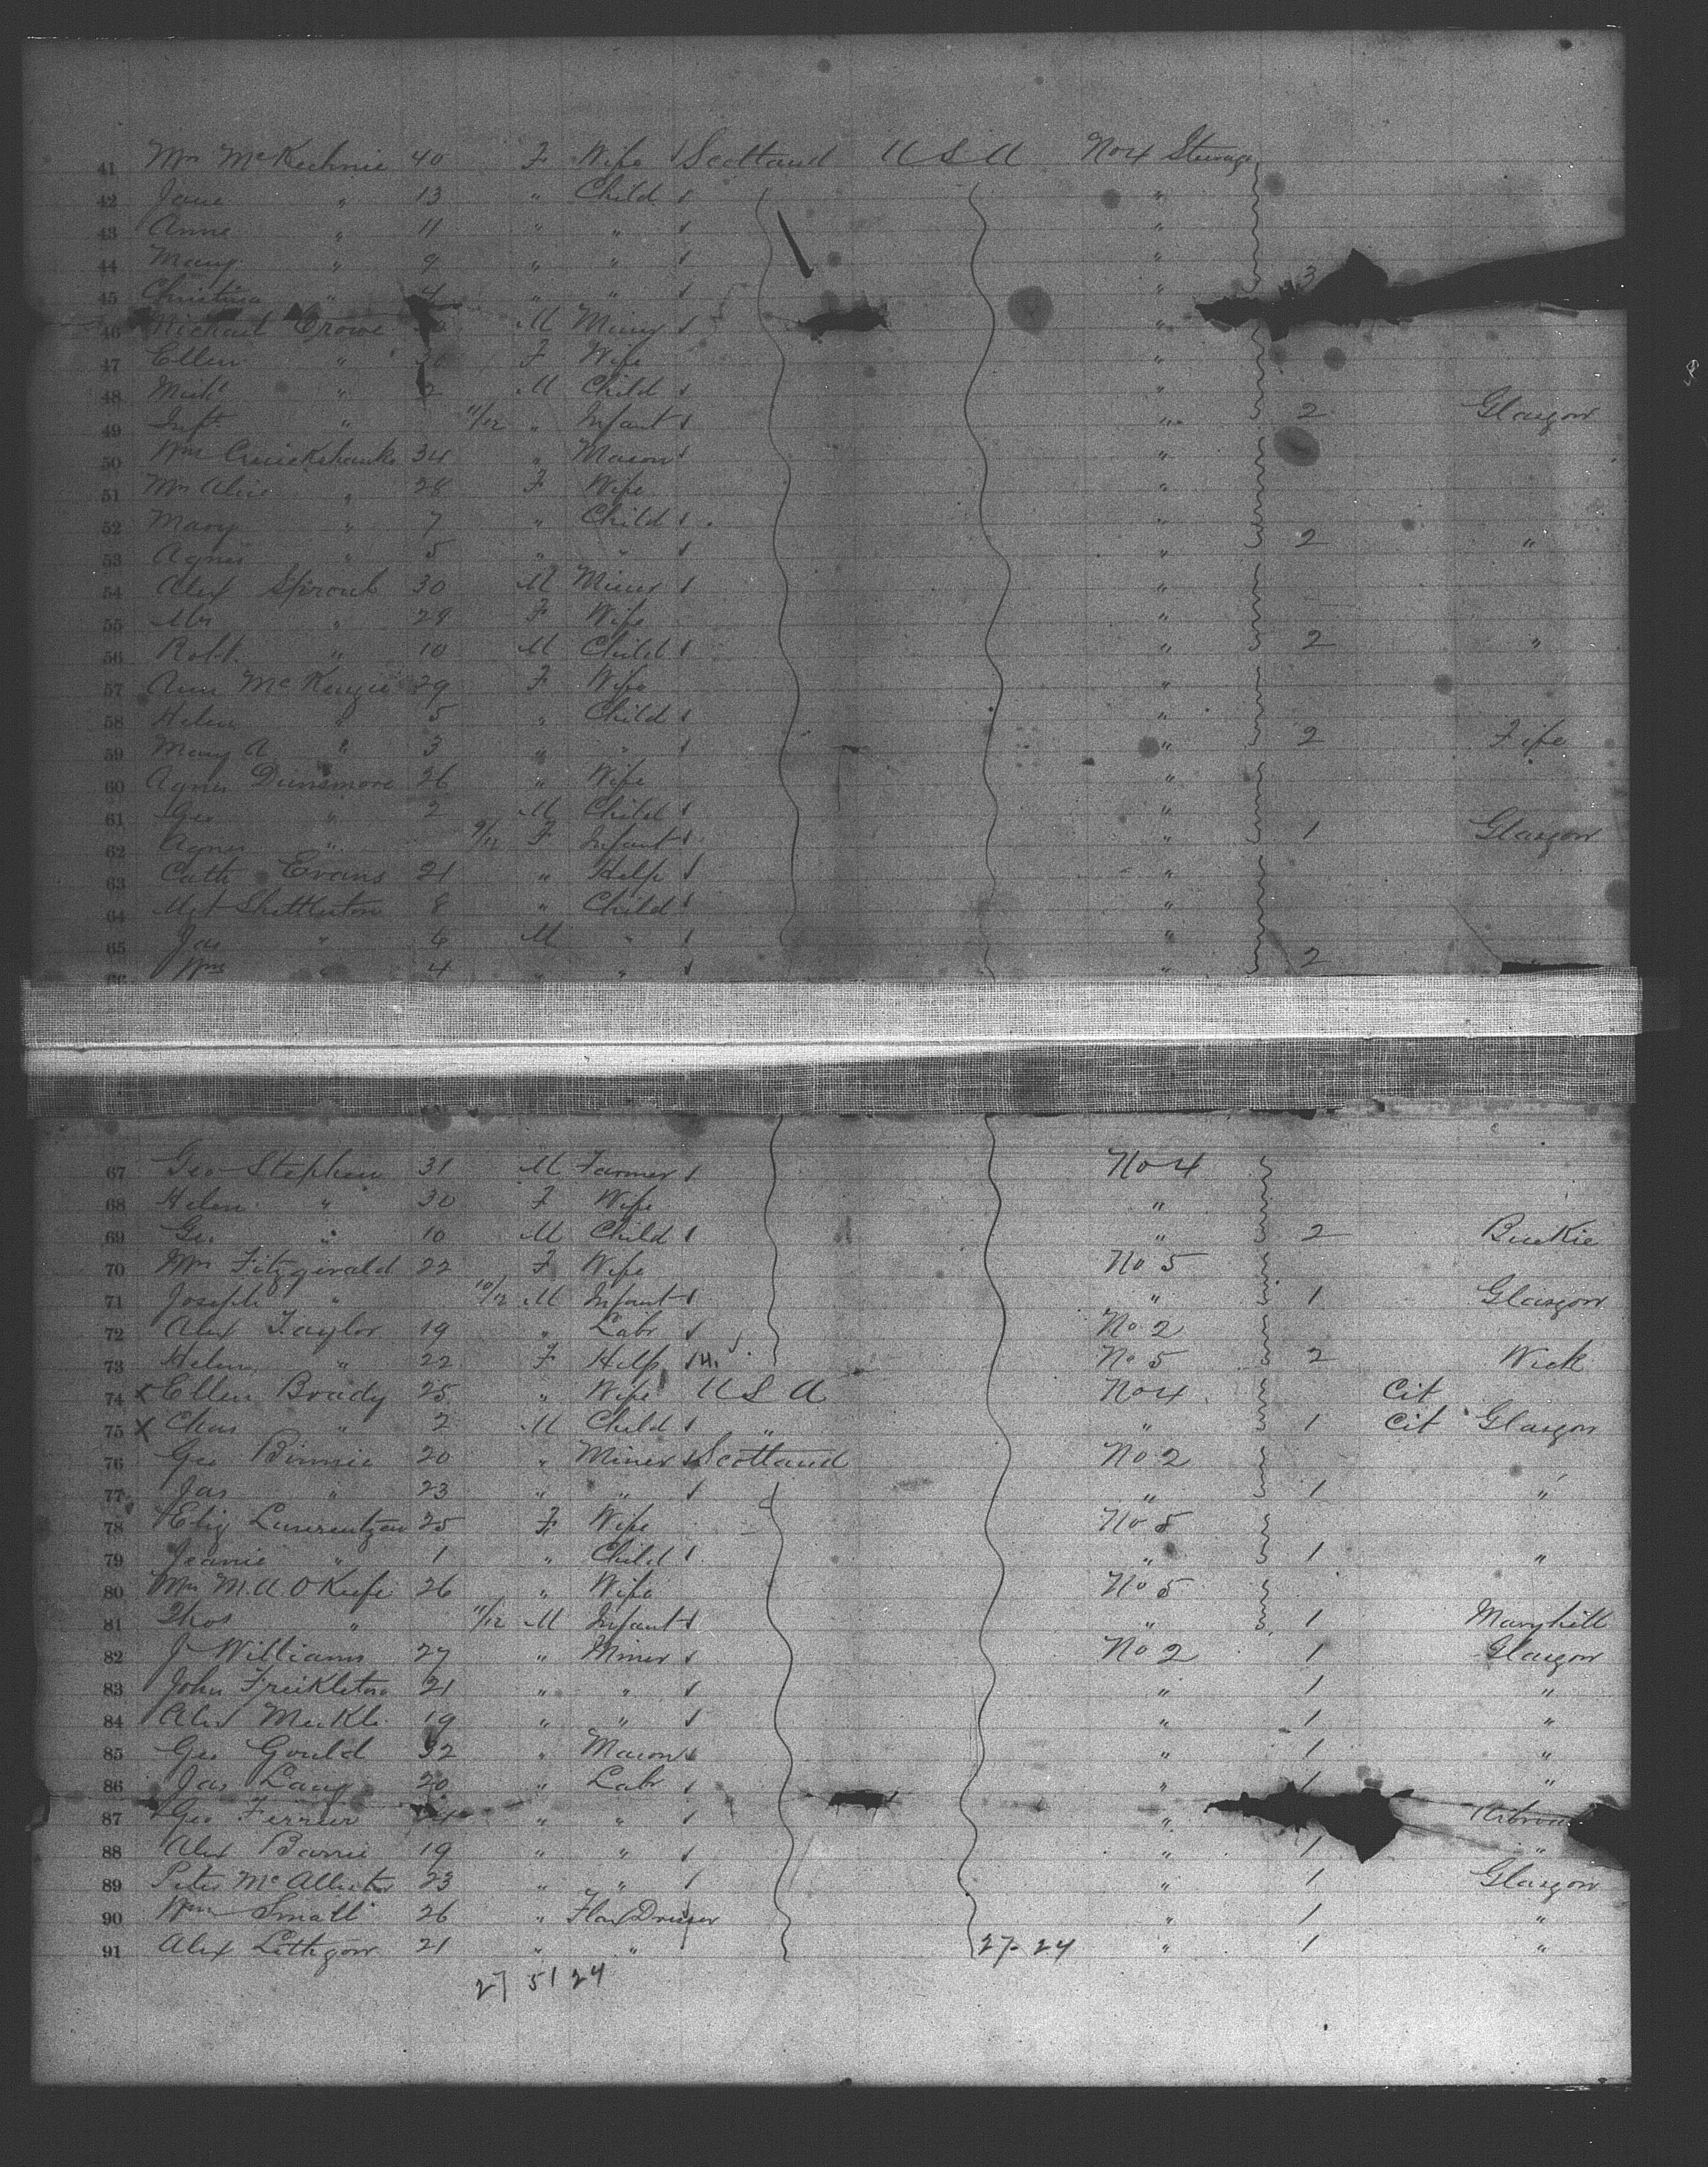 41 Mrs McKechnie 40 F Wife Scotland U S A No 4 Steerage
42 Jane " 13 " Child "
43 Anne " 11 " " "
44 Mary " 9 " " " 3
45 Christina " 4 " " "
46 Michael Crowe M Miner "
47 Ellen " 30 F Wife "
48 Michl " 2 M Child "
49 Inft " 11/12 " Infant " 2 Glasgow
50 Wm Cruickshanks 34 " Mason "
51 Mrs Alice " 28 F Wife "
52 Mary " 7 " Child "
53 Agnes " 5 " " " 2 "
54 Alex Sproul 30 M Miner "
55 Mrs " 28 F Wife "
56 Robt " 10 M Child " 2 "
57 Ann McKenzie 29 F Wife "
58 Helen " 5 " Child "
59 Mary A " 3 " " " 2 Fife
60 Agnes Dunsmore 26 " Wife "
61 Geo " 2 M Child "
62 Agnes " 9/12 F Infant " 1 Glasgow
63 Cath Evans 21 " Help "
64 Mgt Shettleston 8 " Child "
65 Jas " 6 M " "
66 Wm " 4 " " " 2
67 Geo Stephen 31 M Farmer No 4
68 Helen " 30 F Wife "
69 Geo " 10 M Child " 2 Buckie
70 Mrs Fitzgerald 22 F Wife No 5
71 Joseph " 10/12 M Infant " 1 Glasgow
72 Alex Taylor 19 " Labr No 2
73 Helen " 22 F Help No 5 2 Wick
74 X Ellen Brady 25 " Wife U S A No 4 Cit
75 X Chas " 2 M Child " " 1 Cit Glasgow
76 Geo Binnie 20 " Miner Scotland No 2
77 Jas " 23 " " " 1 "
78 Eliz Laurentzen 25 F Wife No 5
79 Jeanie " 1 " Child " 1 "
80 Mrs M. A O Keefe 26 " Wife No 5
81 Thos " 11/12 M Infant " 1 Maryhill
82 J Williams 27 " Miner No 2 1 Glasgow
83 John Freikleton 21 " " " 1 "
84 Alex Meikle 19 " " " 1 "
85 Geo Gould 32 " Mason " 1 "
86 Jas Lang 20 " Labr " 1 "
87 Geo Ferrier " " "
88 Alex Barrie 19 " " " 1 "
89 Peter McAllister 23 " " " 1 Glasgow
90 Wm Small 26 " Flax Dresser " 1 "
91 Alex Lithgow 21 " " 27-24 " 1 "
27 51 24